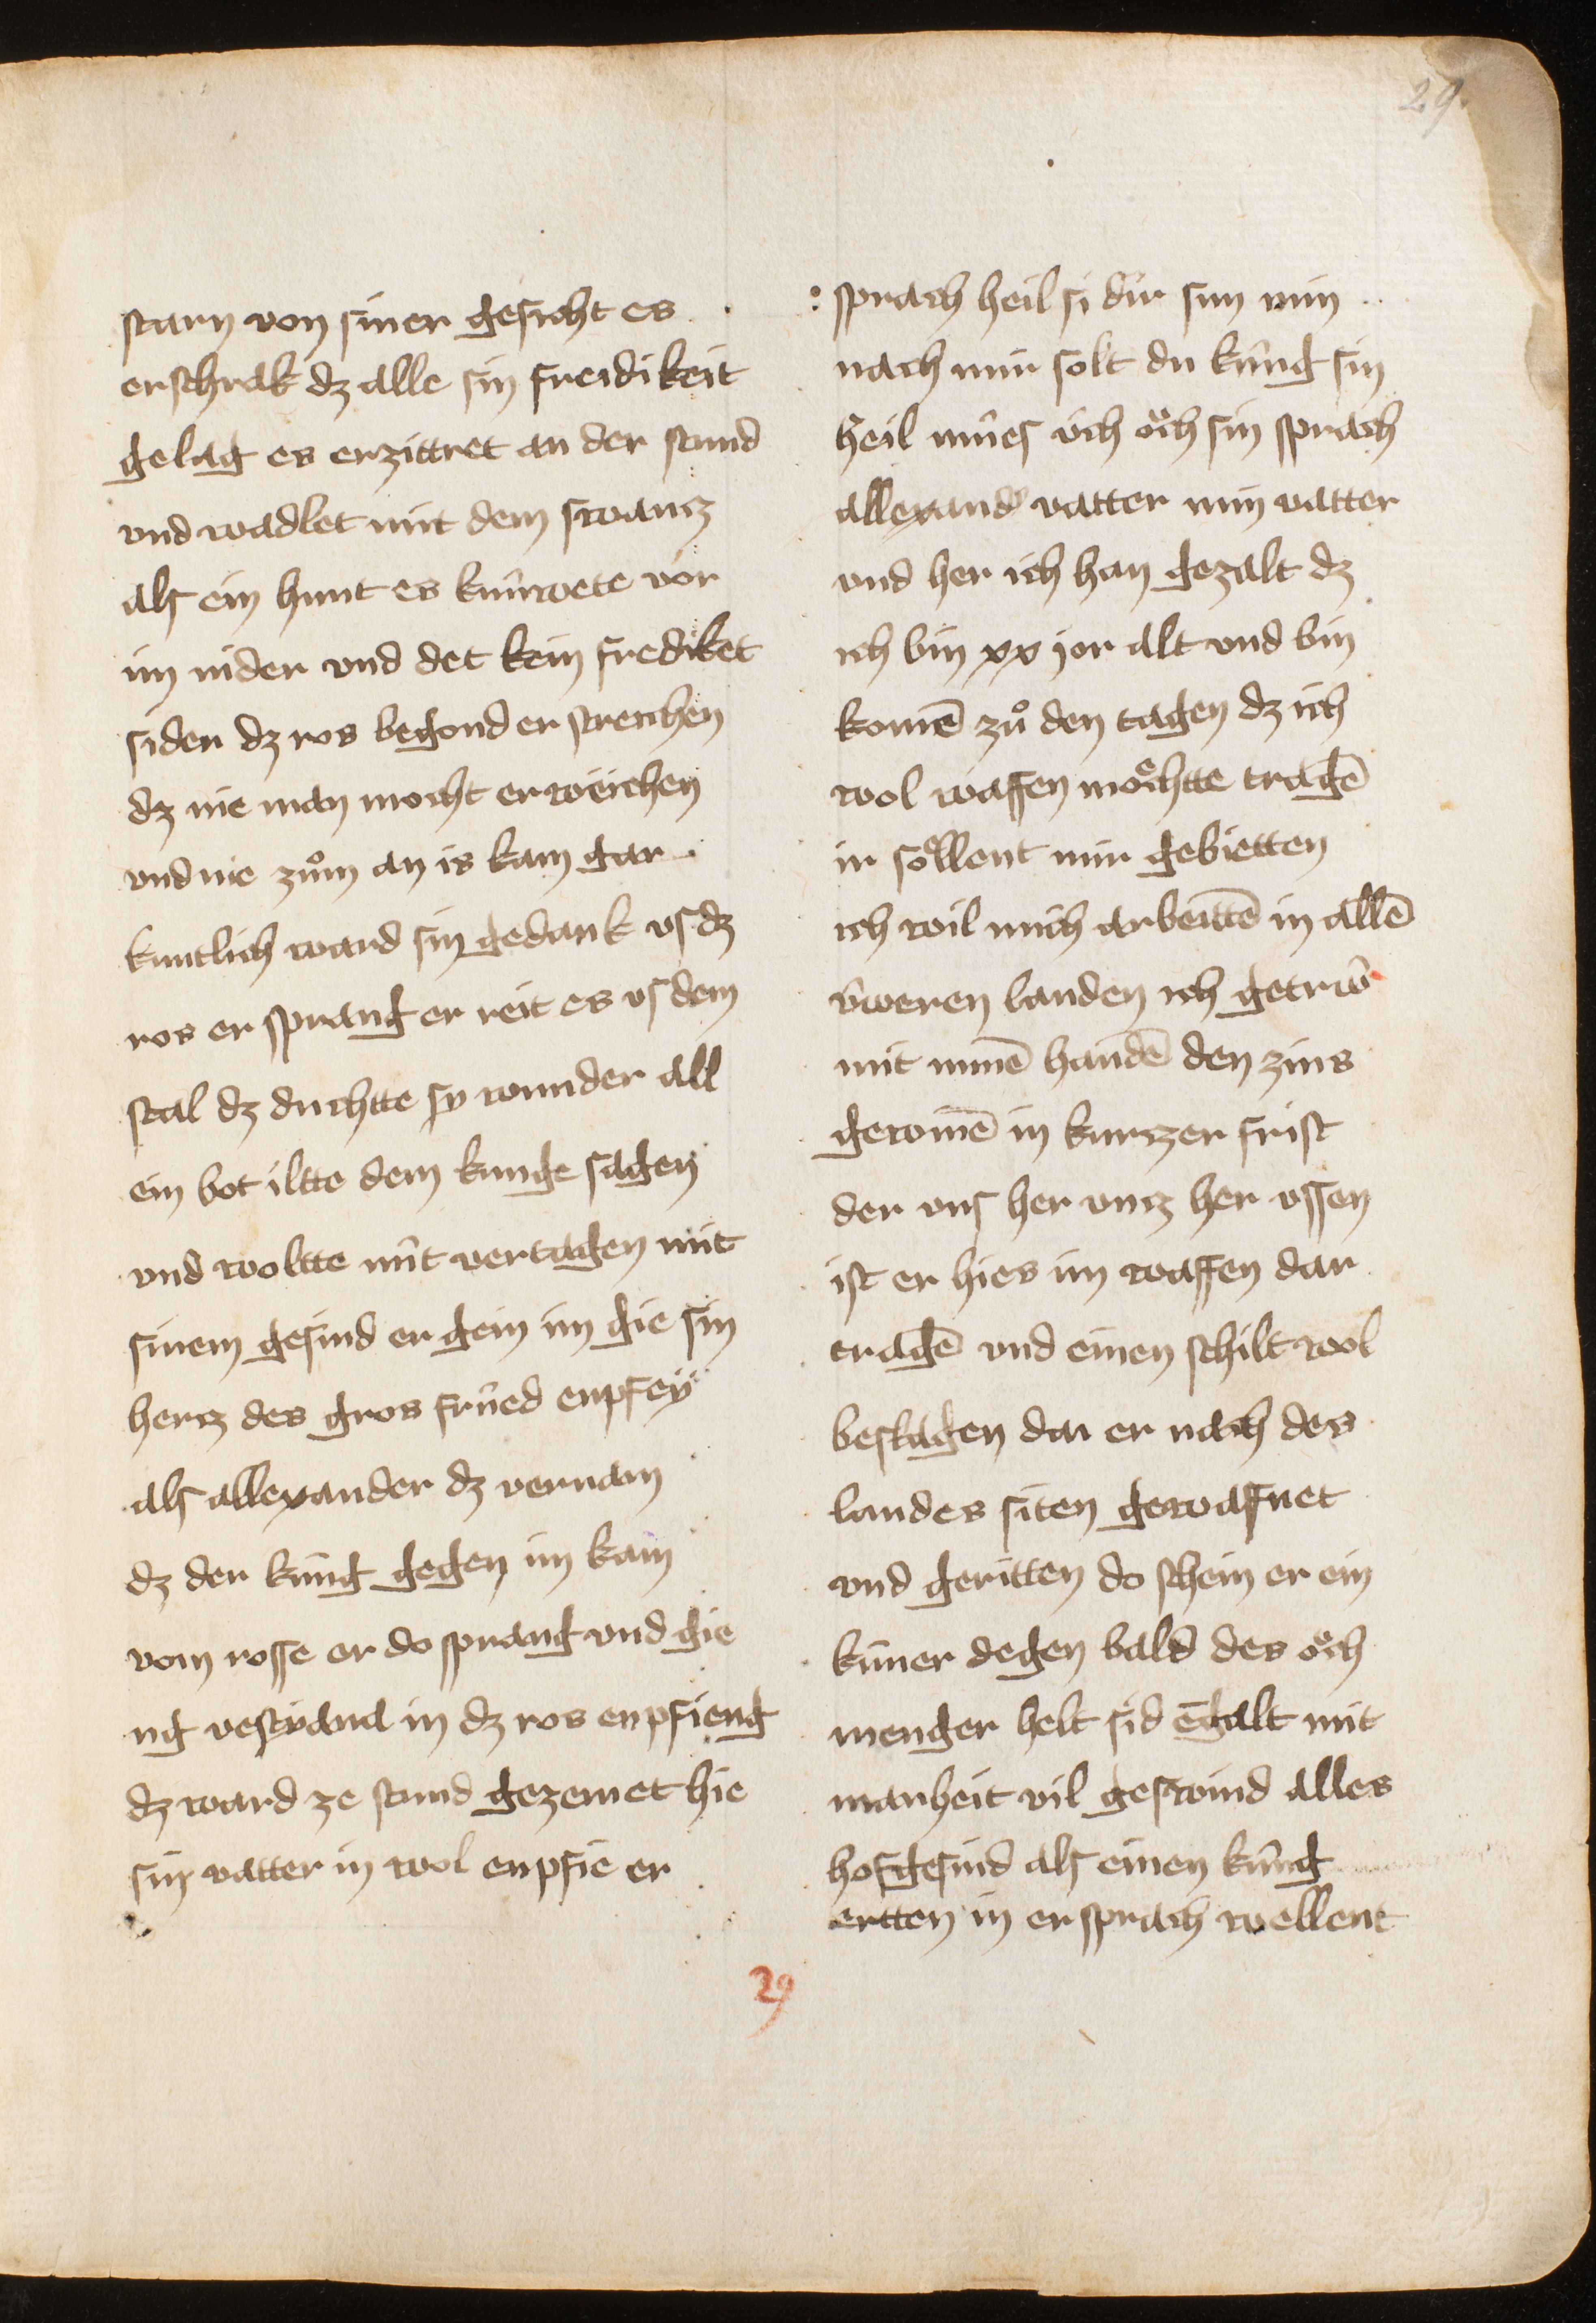 29.
starn von siner gesicht es
erschrak dz alle sin freidikeit
gelag es erzittret an der stund
vnd wadlet mit dem swancz
als ein hunt es knúwete vor
im nider vnd det kein frediket
sider dz ros begond er streichen
dz nie man mocht erweichen
vnd nie zům an is kam gar
kuntlich ward sin gedank vf dz
ros er sprang er reit es vs dem
stal dz duchtte sy wunder all
ein bot iltte dem kunge sagen
vnd woltte nút vertagen mit
sinem gesind er gein im gie sin
hercz des gros frúed enpfey
als allexander dz vernam
dz der kúng gegen im kam
vom rosse er do sprang vnd gie
ng vestiana in dz ros enpfieng
dz ward ze stund gezemet hie
sin vatter in wol enpfie er
sprach heil si dir sun min
nach mir solt du kúng sin
heil mu̇es úch öch sin sprach
allexand' vatter min vatter
vnd her ich han gezalt dz
ich bin xx jor alt vnd bin
komē zů den tagen dz ich
wol waffen möchtte tragē
ir söllent mir gebietten
ich wil mich arbeittē in allē
úweren landen ich getrŵ
mit minē handē den zins
gewinē in kurczer frist
der vns her vncz her vssen
ist er hies im waffen dar
tragē vnd einen schilt wol
beslagen dar er nach des
landes siten gewaffnet
vnd geritten do schein er ein
kúner degen bald des öch
menger helt sid ēgalt mit
manheit vil geswind alles
hofgesind als einen kúng
ertten in er sprach wellent
29